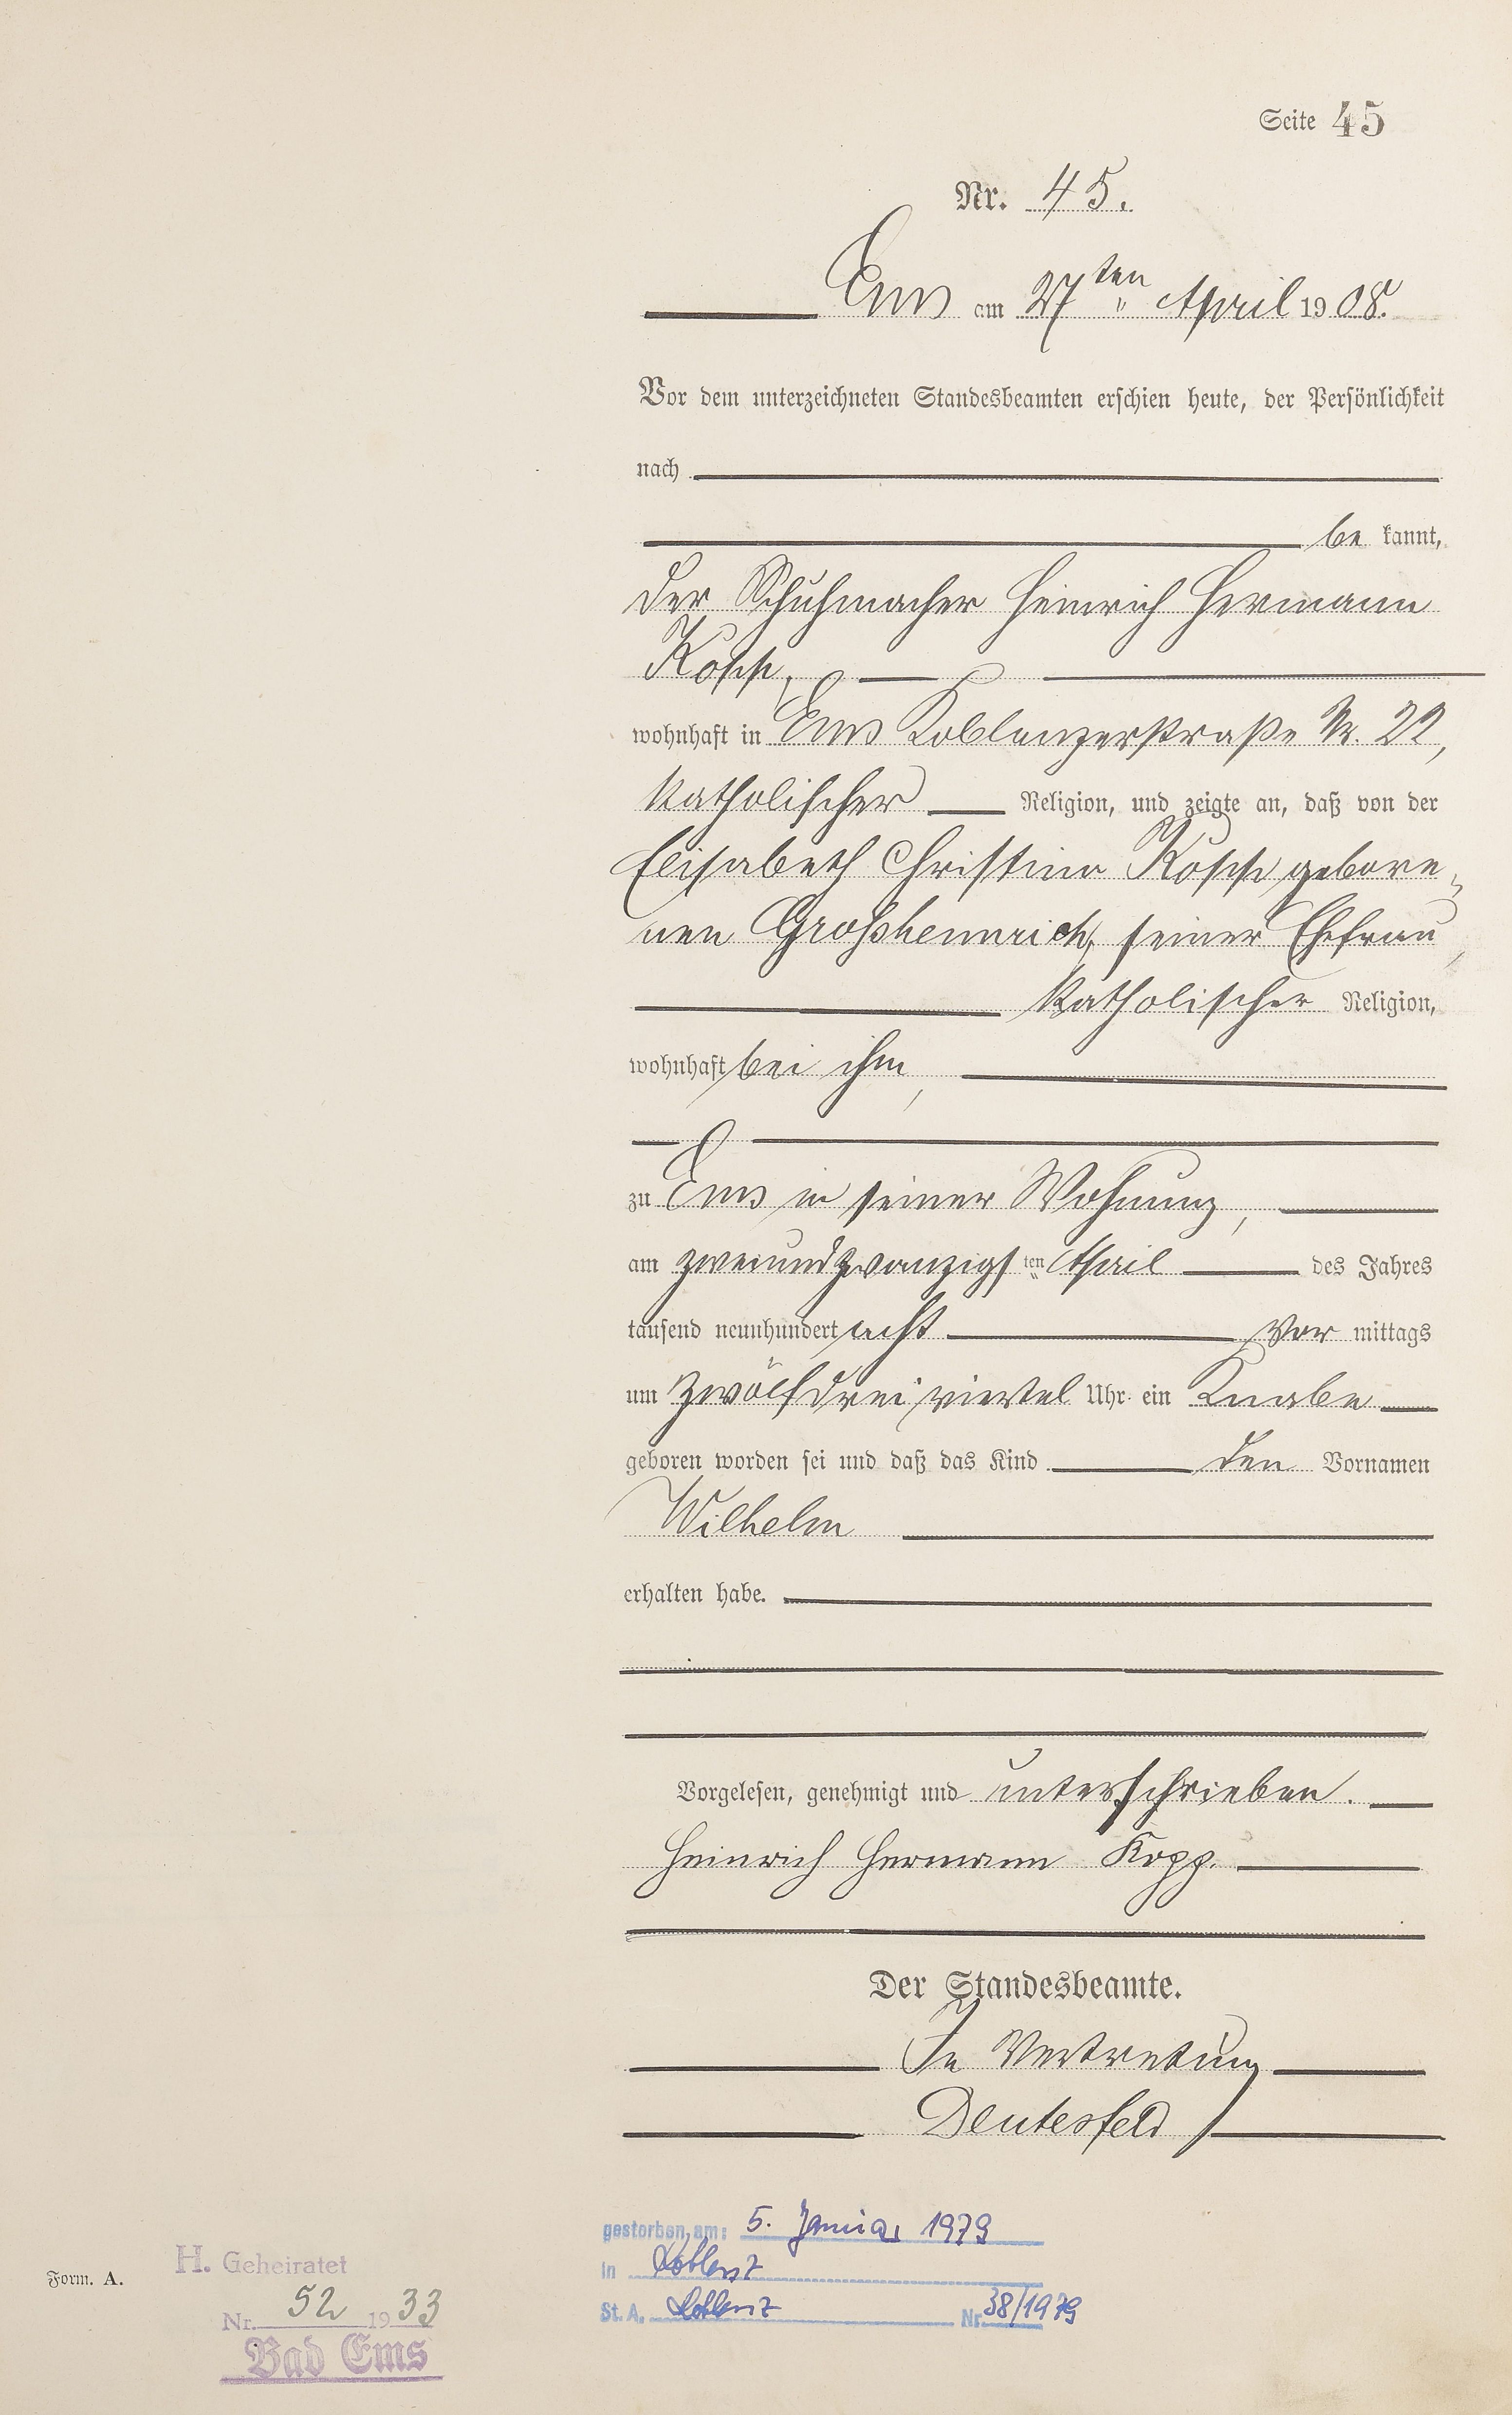 Seite 45
Nr. 45.
Ems am 27ten April 1908.
Vor dem unterzeichneten Standesbeamten erschien heute, der Persönlichkeit
nach
be kannt,
der Schuhmacher Heinrich Hermann
Kopp,
wohnhaft in Ems Koblenzerstraße Nr. 22,
katholischer Religion, und zeigte an, daß von der
Elisabeth Christina Kopp gebore-
nen Großhennrich, seiner Ehefrau,
katholischer Religion,
wohnhaft bei ihm,
zu Ems in seiner Wohnung,
am zweiundzwanzigsten April des Jahres
tausend neunhundert acht Vor mittags
um zwölfdreiviertel Uhr ein Knabe
geboren worden sei und daß das Kind den Vornamen
Wilhelm
erhalten habe.
Vorgelesen, genehmigt und unterschrieben.
Heinrich Hermann Kopp.
Der Standesbeamte.
In Vertretung
Deutesfeld
gestorben am: 5. Januar 1979
in Koblenz
St. A. Koblenz Nr. 38/1979
Form. A.
H. Geheiratet
Nr. 52 1933
Bad Ems